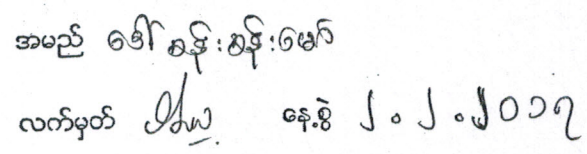 အမည် ဒေါ် စန်းစန်းမော်
လက်မှတ် နေ့စွဲ ၂.၂.၂၀၁၇